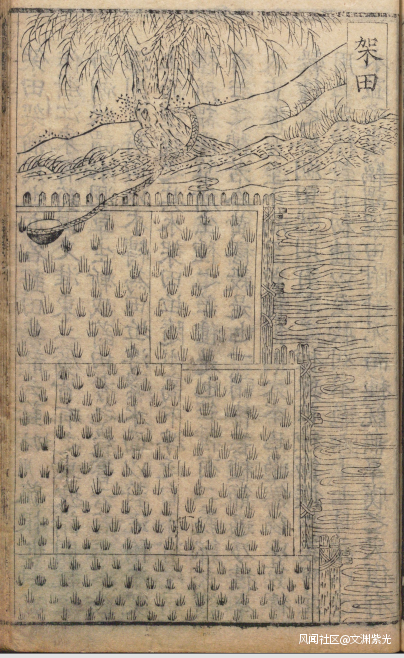 架田
风闻社区@文渊紫光